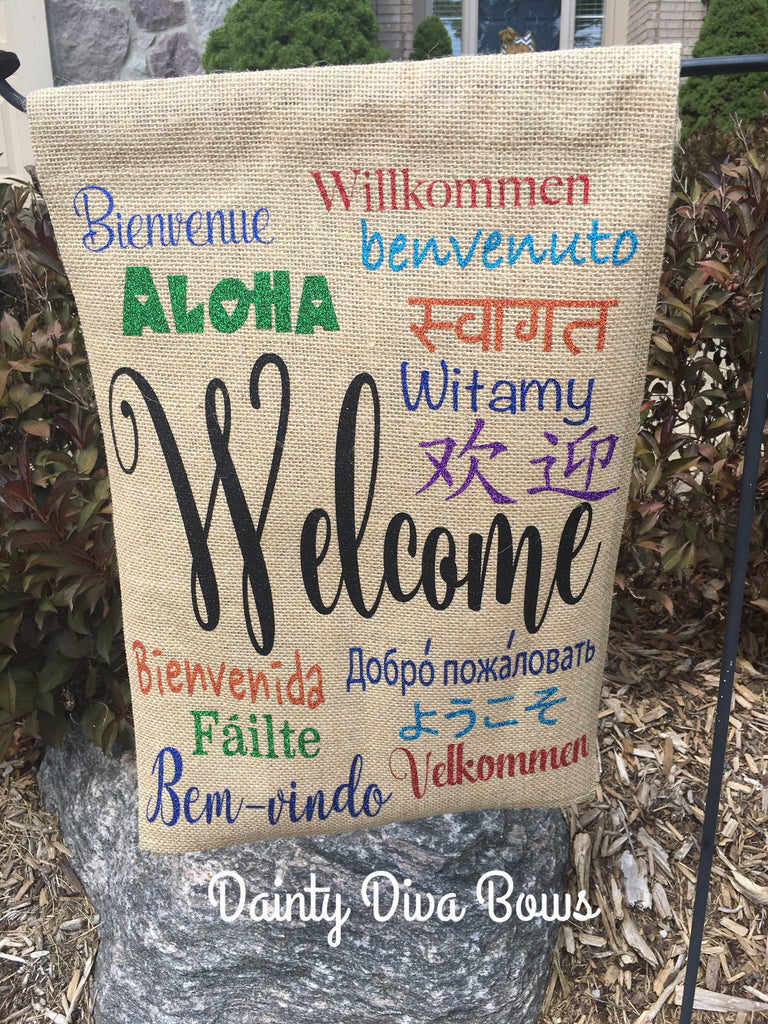 Willkommen
Bienvenue
benvenuto
ALOHA
स्वागत
Witamy
欢迎
Welcome
Bienvenida
Добро́ пожа́ловать
Fáilte
ようこそ
Velkommen
Bem-vindo
Dainty Diva Bows